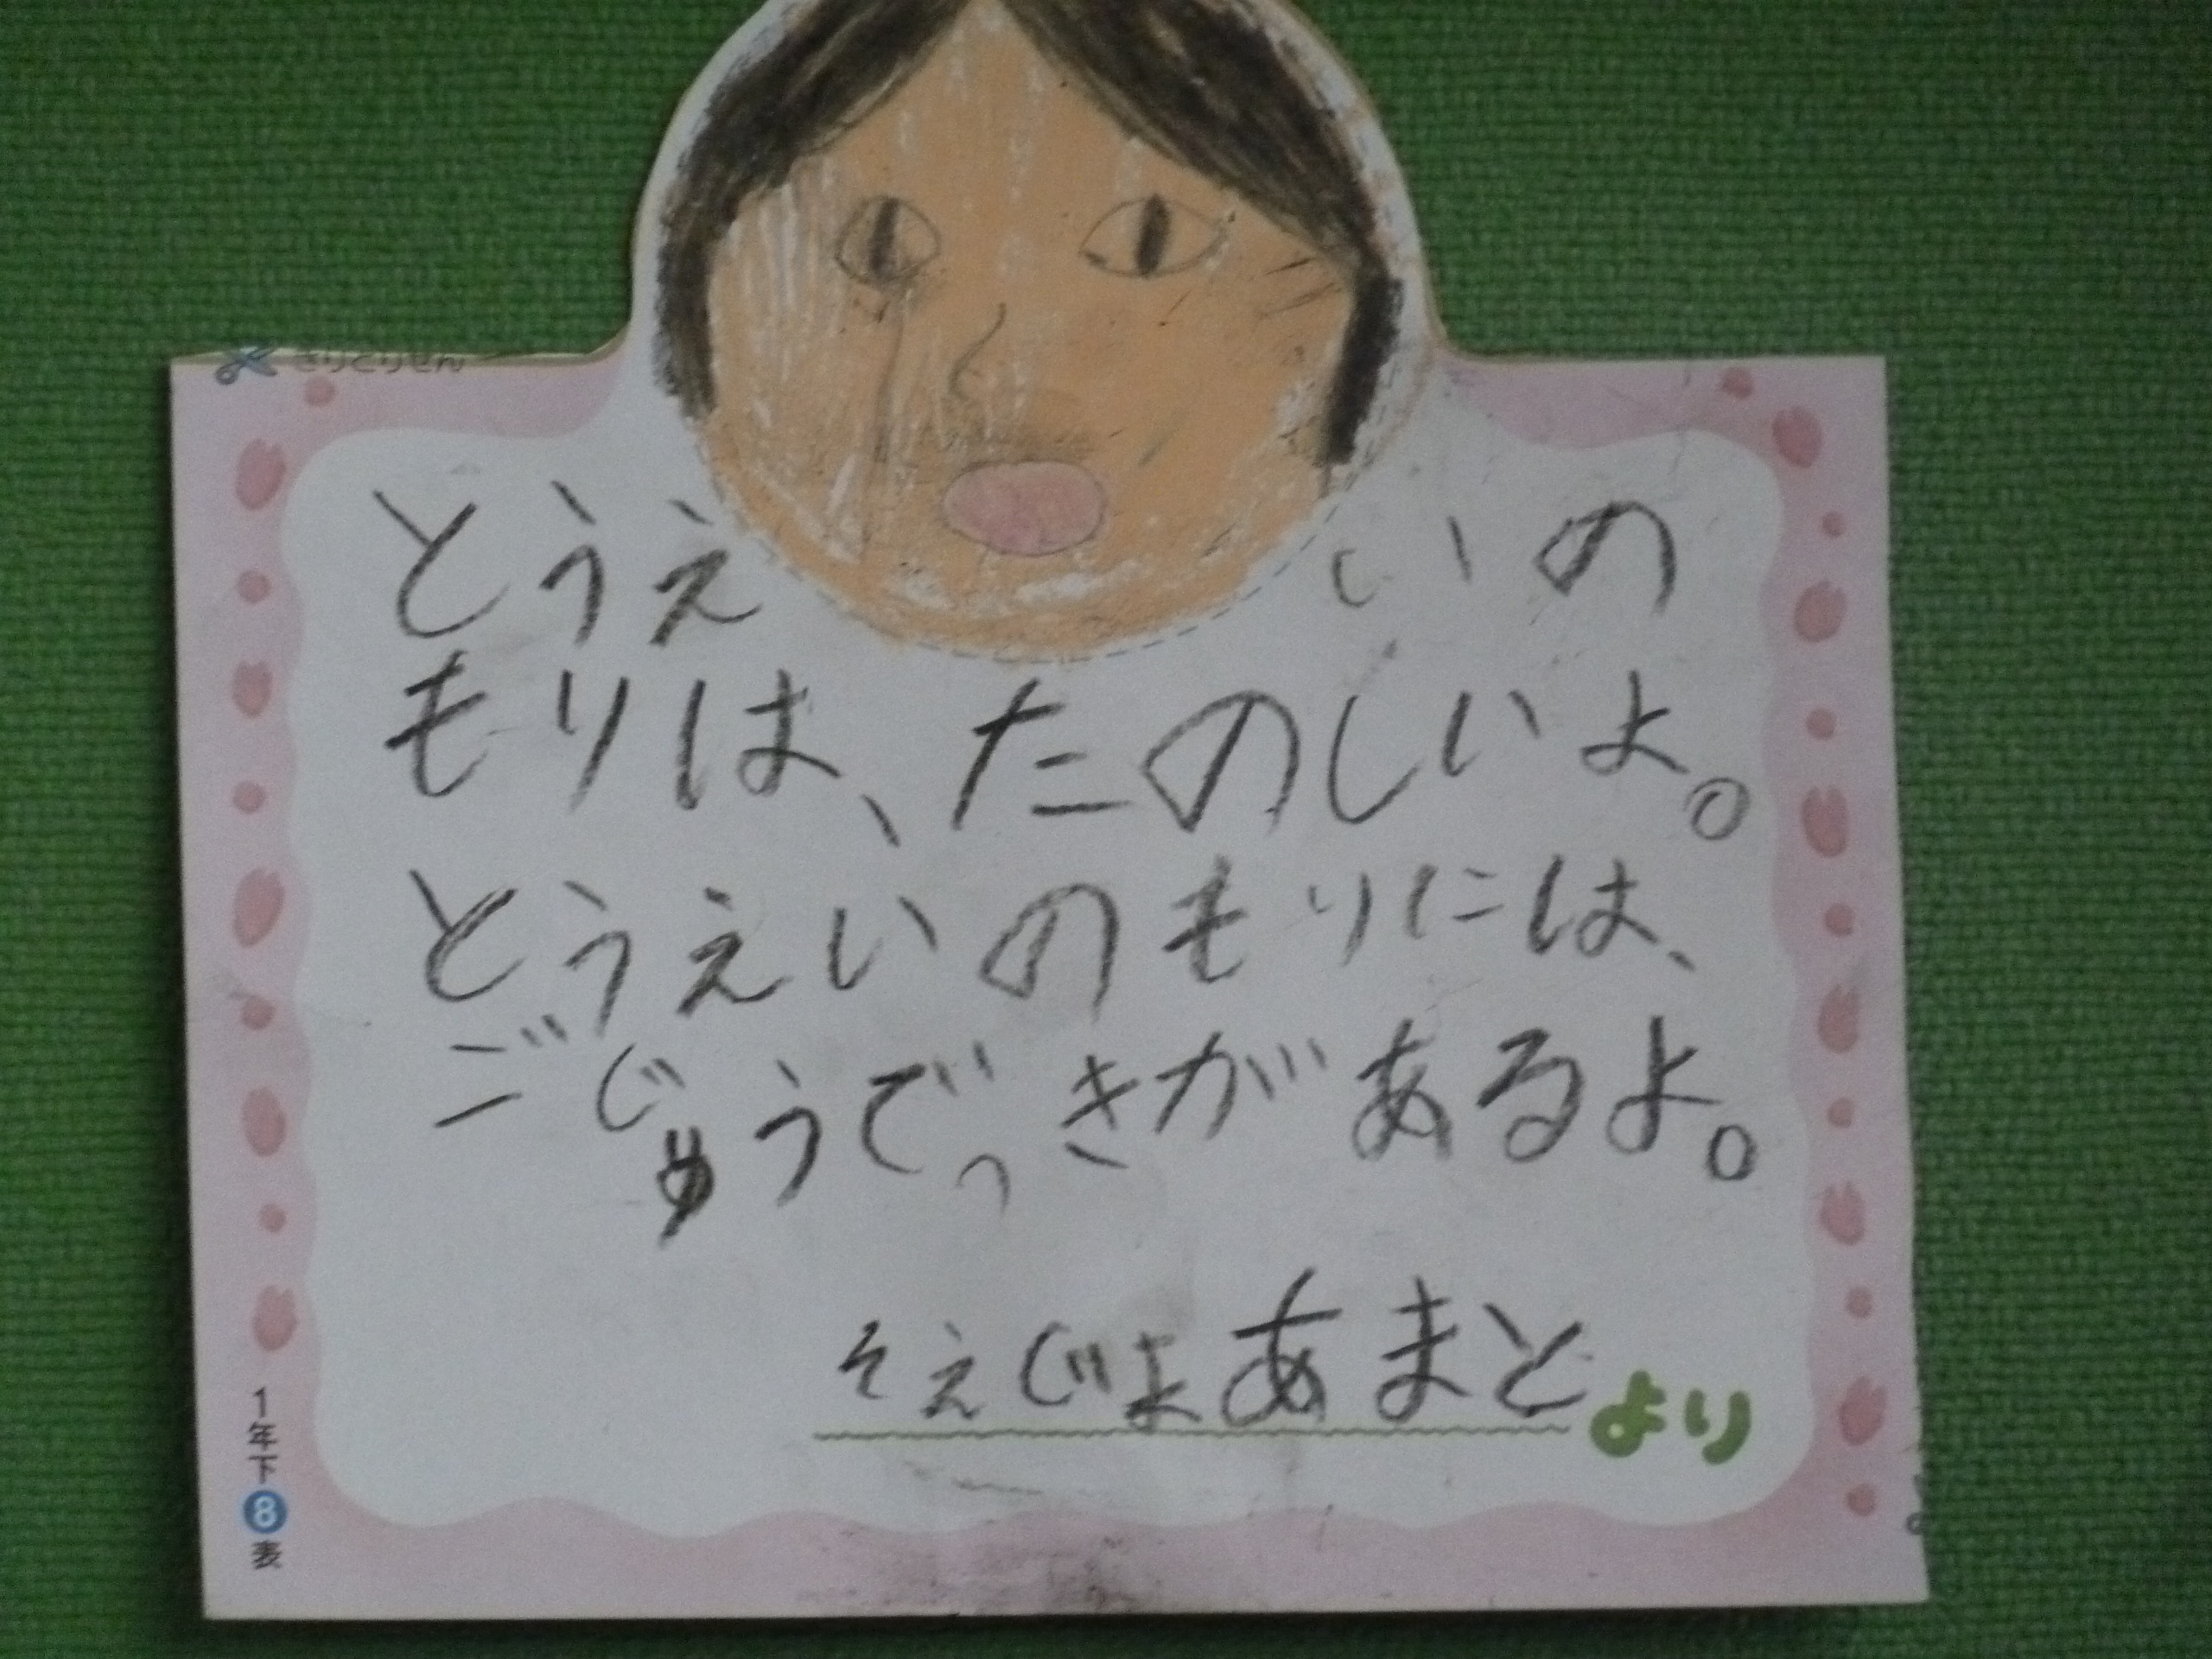 きりとりせん
とうえいの
もりは、たのしいよ。
とうえいのもりには、
ごじゅうでっきがあるよ。
そえじよあまとより
1年下8表